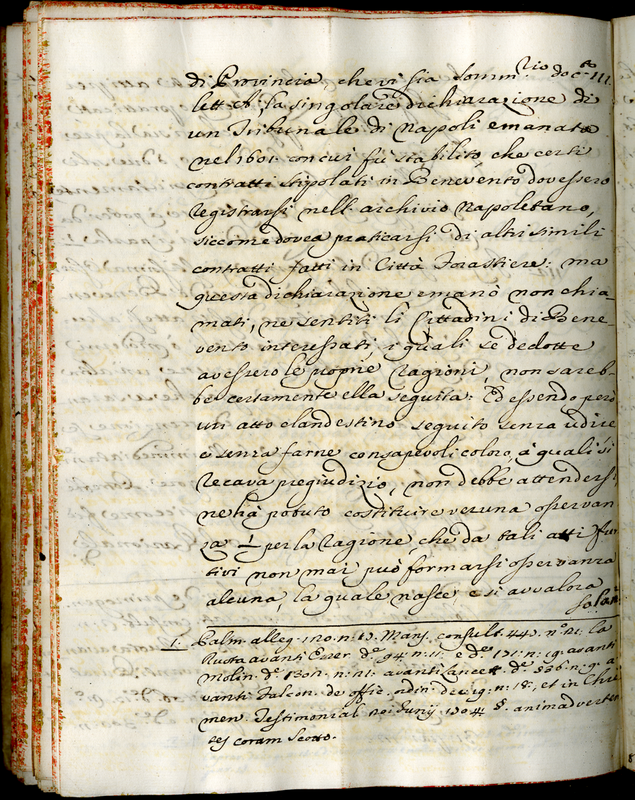 di Provincia che vi sia Somm.rio doc.to III.
lett. A, la singolare dichiarazione di
un Tribunale di Napoli emanata
nel 1601. con cui fù stabilito, che certi
contratti stipolati in Benevento dovessero
registrarsi nell'archivio Napoletano,
siccome dovea praticarsi di altri simili
contratti fatti in Città forastiere: ma
questa dichiarazione emanò non chia-
mati, ne sentiti li Cittadini di Bene-
vento interessati, i quali se dedotte
avessero le proprie ragioni, non sareb-
be certamente ella seguita: Ed essendo però
un atto clandestino seguito senza udire
e senza farne consapevoli coloro, a quali si
recava pregiudizio, non debbe attendersi
ne hà potuto costituire veruna osservan
za 1 per la ragione, che da tali atti fur
tivi non mai può formarsi osservanza
alcuna, la quale nasce, e si avvalora
solam
1. Palm. alleg. 120. n: 13. Mans. consult. 443. n.o 21: la
Ruota avanti Emer. d.o 94. n: 11. e d.o 131. n: 19. avanti
Molin. d.o 1307. n: 21. avanti Lancett. d.o 536. n: 9. a
vanti Falcon. de offic. ndin. dec. 19. n: 18., et in
men. Testimonial. 20. Junij 1704. §. animadverten
tes coram Scotto.